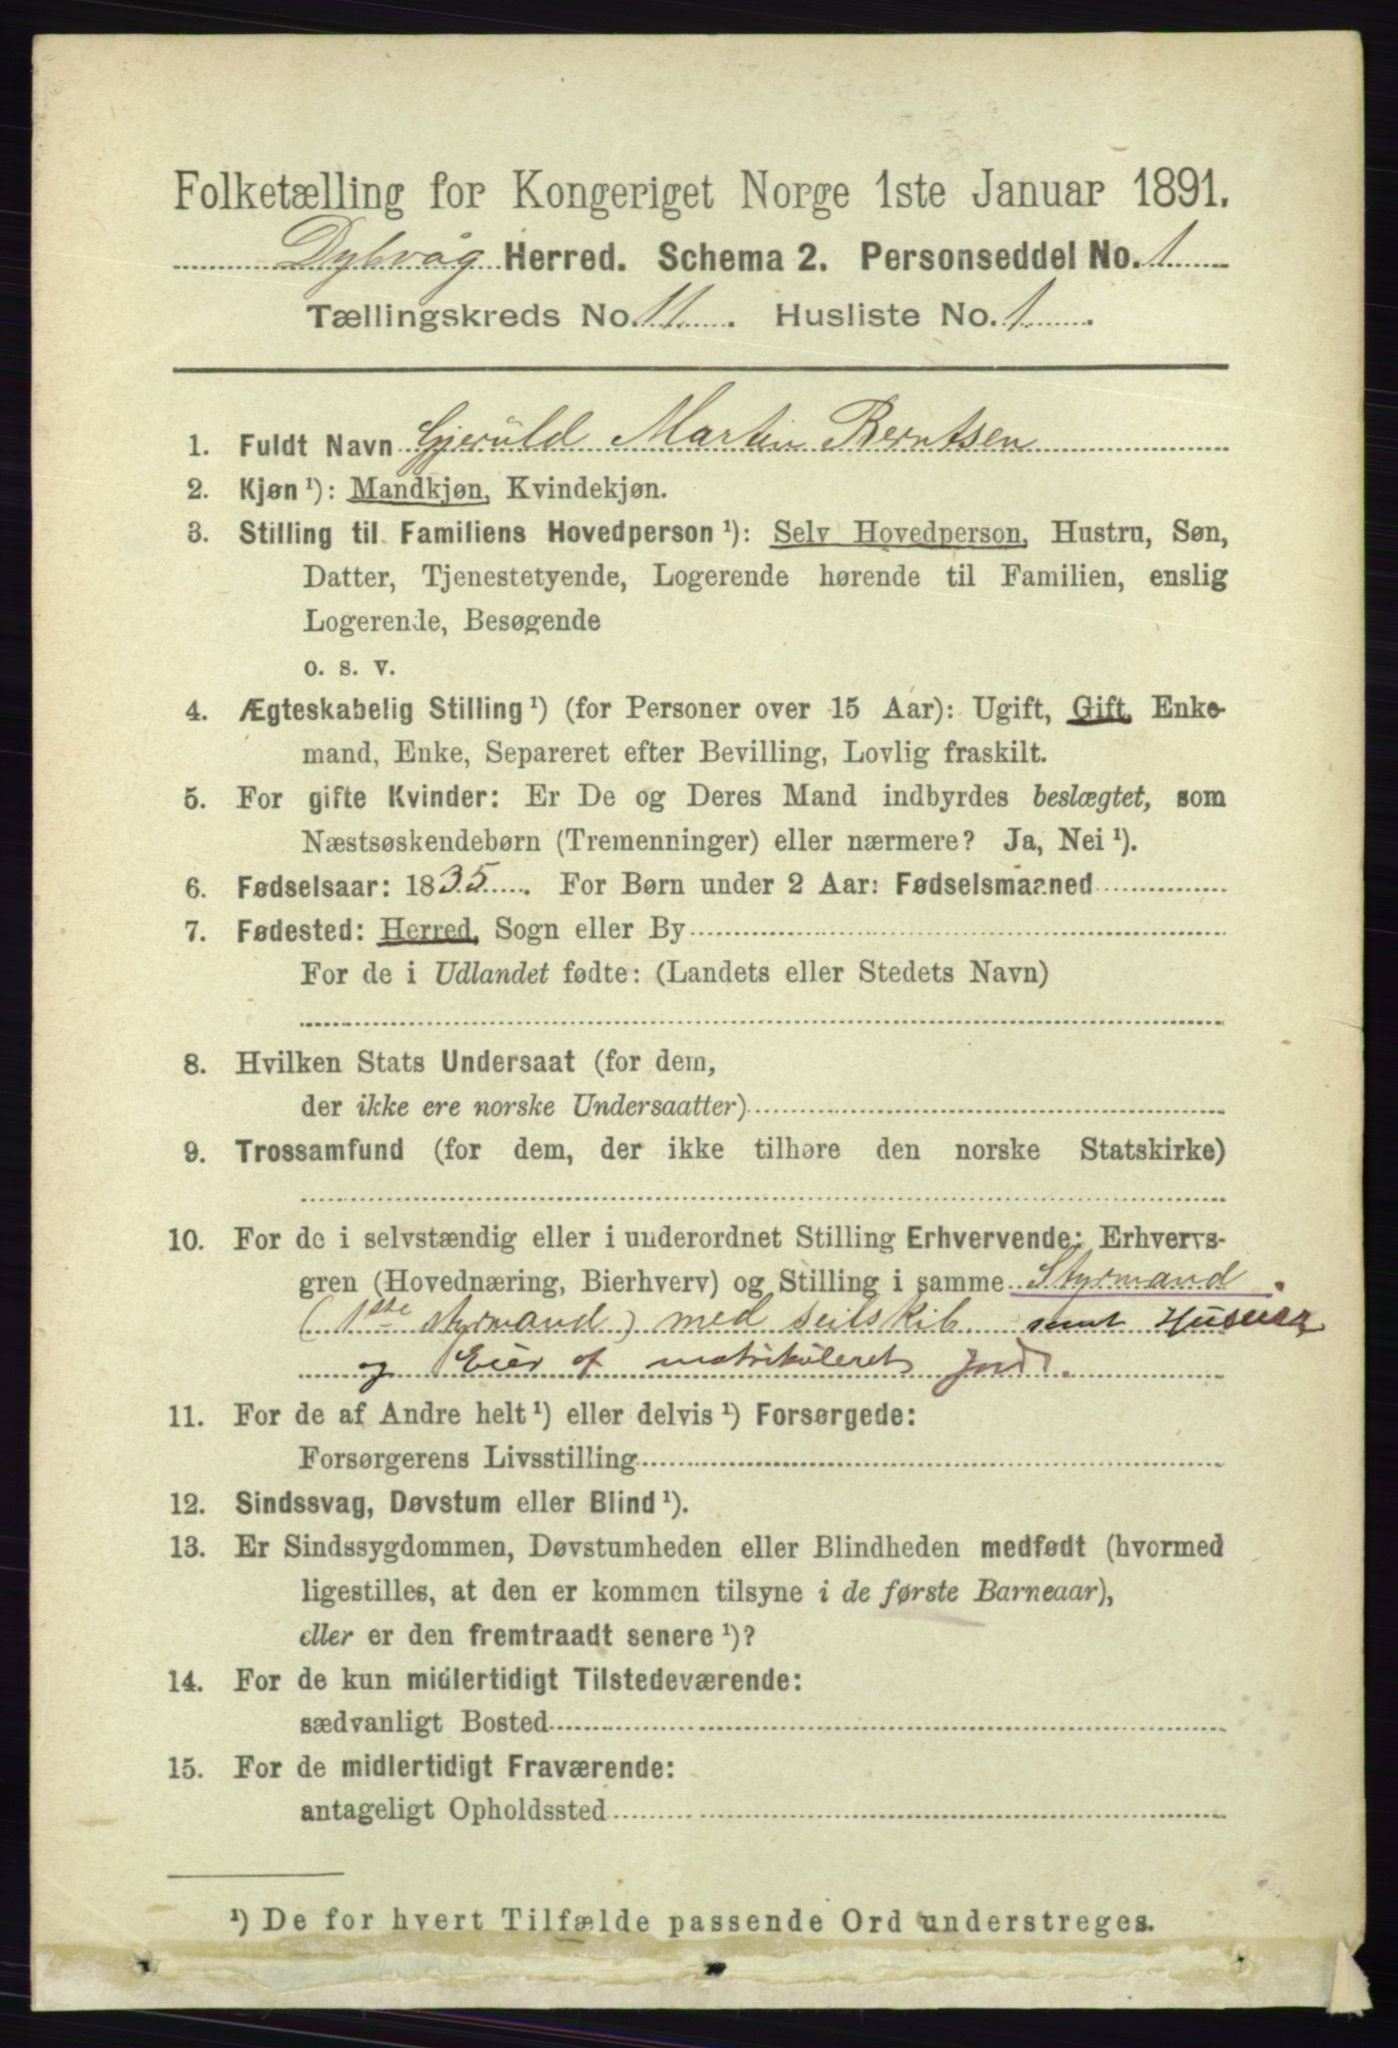 Folketælling for Kongeriget Norge 1ste Januar 1891.
Dybvåg Herred. Schema 2. Personseddel No. 1
Tællingskreds No. 11. Husliste No. 1.
1. Fuldt Navn Gjeruld Martin Berntsen
2. Kjøn ¹): Mandkjøn, Kvindekjøn.
3. Stilling til Familiens Hovedperson ¹): Selv Hovedperson, Hustru, Søn,
Datter, Tjenestetyende, Logerende hørende til Familien, enslig
Logerende, Besøgende
o. s. v.
4. Ægteskabelig Stilling ¹) (for Personer over 15 Aar): Ugift, Gift, Enke-
mand, Enke, Separeret efter Bevilling, Lovlig fraskilt.
5. For gifte Kvinder: Er De og Deres Mand indbyrdes beslægtet, som
Næstsøskendebørn (Tremenninger) eller nærmere? Ja, Nei ¹).
6. Fødselsaar: 1835. For Børn under 2 Aar: Fødselsmaaned
7. Fødested: Herred, Sogn eller By
For de i Udlandet fødte: (Landets eller Stedets Navn)
8. Hvilken Stats Undersaat (for dem,
der ikke ere norske Undersaatter)
9. Trossamfund (for dem, der ikke tilhøre den norske Statskirke)
10. For de i selvstændig eller i underordnet Stilling Erhvervende: Erhvervs-
gren (Hovednæring, Bierhverv) og Stilling i samme Styrmand.
(1ste styrmand) med seilskib samt Huseier
og Eier af matrikuleret Jord.
11. For de af Andre helt ¹) eller delvis ¹) Forsørgede:
Forsørgerens Livsstilling
12. Sindssvag, Døvstum eller Blind ¹).
13. Er Sindssygdommen, Døvstumheden eller Blindheden medfødt (hvormed
ligestilles, at den er kommen tilsyne i de første Barneaar),
eller er den fremtraadt senere ¹)?
14. For de kun midlertidigt Tilstedeværende:
sædvanligt Bosted
15. For de midlertidigt Fraværende:
antageligt Opholdssted
¹) De for hvert Tilfælde passende Ord understreges.